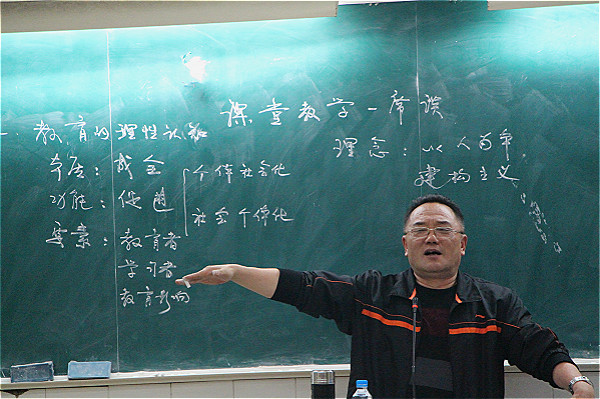 课堂教学一席谈
一、教育的理性认知
本质：成全
功能：促进
个体社会化
社会个体化
要素：教育者
学习者
教育影响
理念：以人为本
建构主义